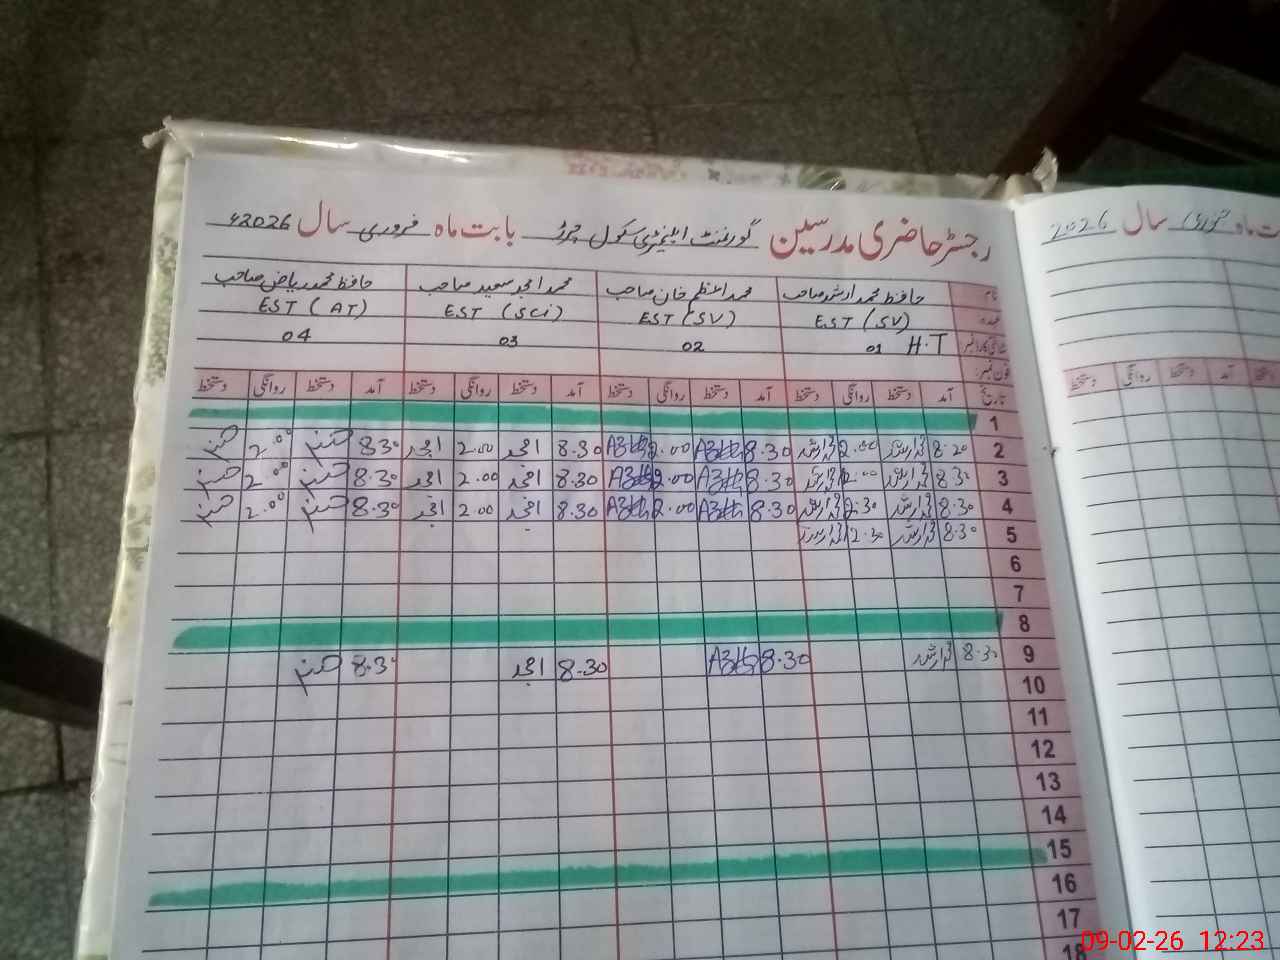 رجسٹر حاضری مدرسین گورنمنٹ ایلیمنٹری سکول بابت ماہ فروری سال 2026ء
نام حافظ محمد ارشد صاحب محمد اعظم خان صاحب محمد امجد سعید صاحب حافظ محمد ریاض صاحب
عہدہ EST (SV) EST (SV) EST (Sci) EST (AT)
شناختی کارڈ نمبر H.T 01 02 03 04
فون نمبر
تاریخ آمد دستخط روانگی دستخط آمد دستخط روانگی دستخط آمد دستخط روانگی دستخط آمد دستخط روانگی دستخط
1
2 8.20 ارشد 2.00 ارشد 8.30 2.00 8.30 امجد 2.00 امجد 8.30 2.00
3 8.30 ارشد 2.00 ارشد 8.30 2.00 8.30 امجد 2.00 امجد 8.30 2.00
4 8.30 ارشد 2.30 ارشد 8.30 2.00 8.30 امجد 2.00 امجد 8.30 2.00
5 8.30 ارشد 2.30 ارشد
6
7
8
9 8.30 ارشد 8.30 8.30 امجد 8.30
10
11
12
13
14
15
16
17
18
ماہ جنوری سال 2026
دستخط روانگی دستخط آمد دستخط
09-02-26 12:23